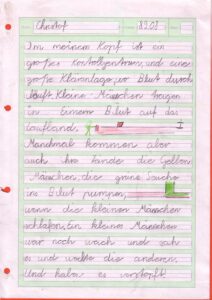 Christof 8.2.08
In meinem Kopf ist ein
großes Kontrollzentrum, und eine
große Kläranlage, wo Blut durch
läuft. Kleine Männchen tragen
In Eimern Blut auf das
Laufband,
Manchmal kommen aber
auch die Gelben
Männchen, die grüne Sauche
ins Blut pumpen,
wenn die kleinen Männchen
schlafen. Ein kleines Männchen
war noch wach und sah
es und weckte die anderen.
Und haben es verstopft!